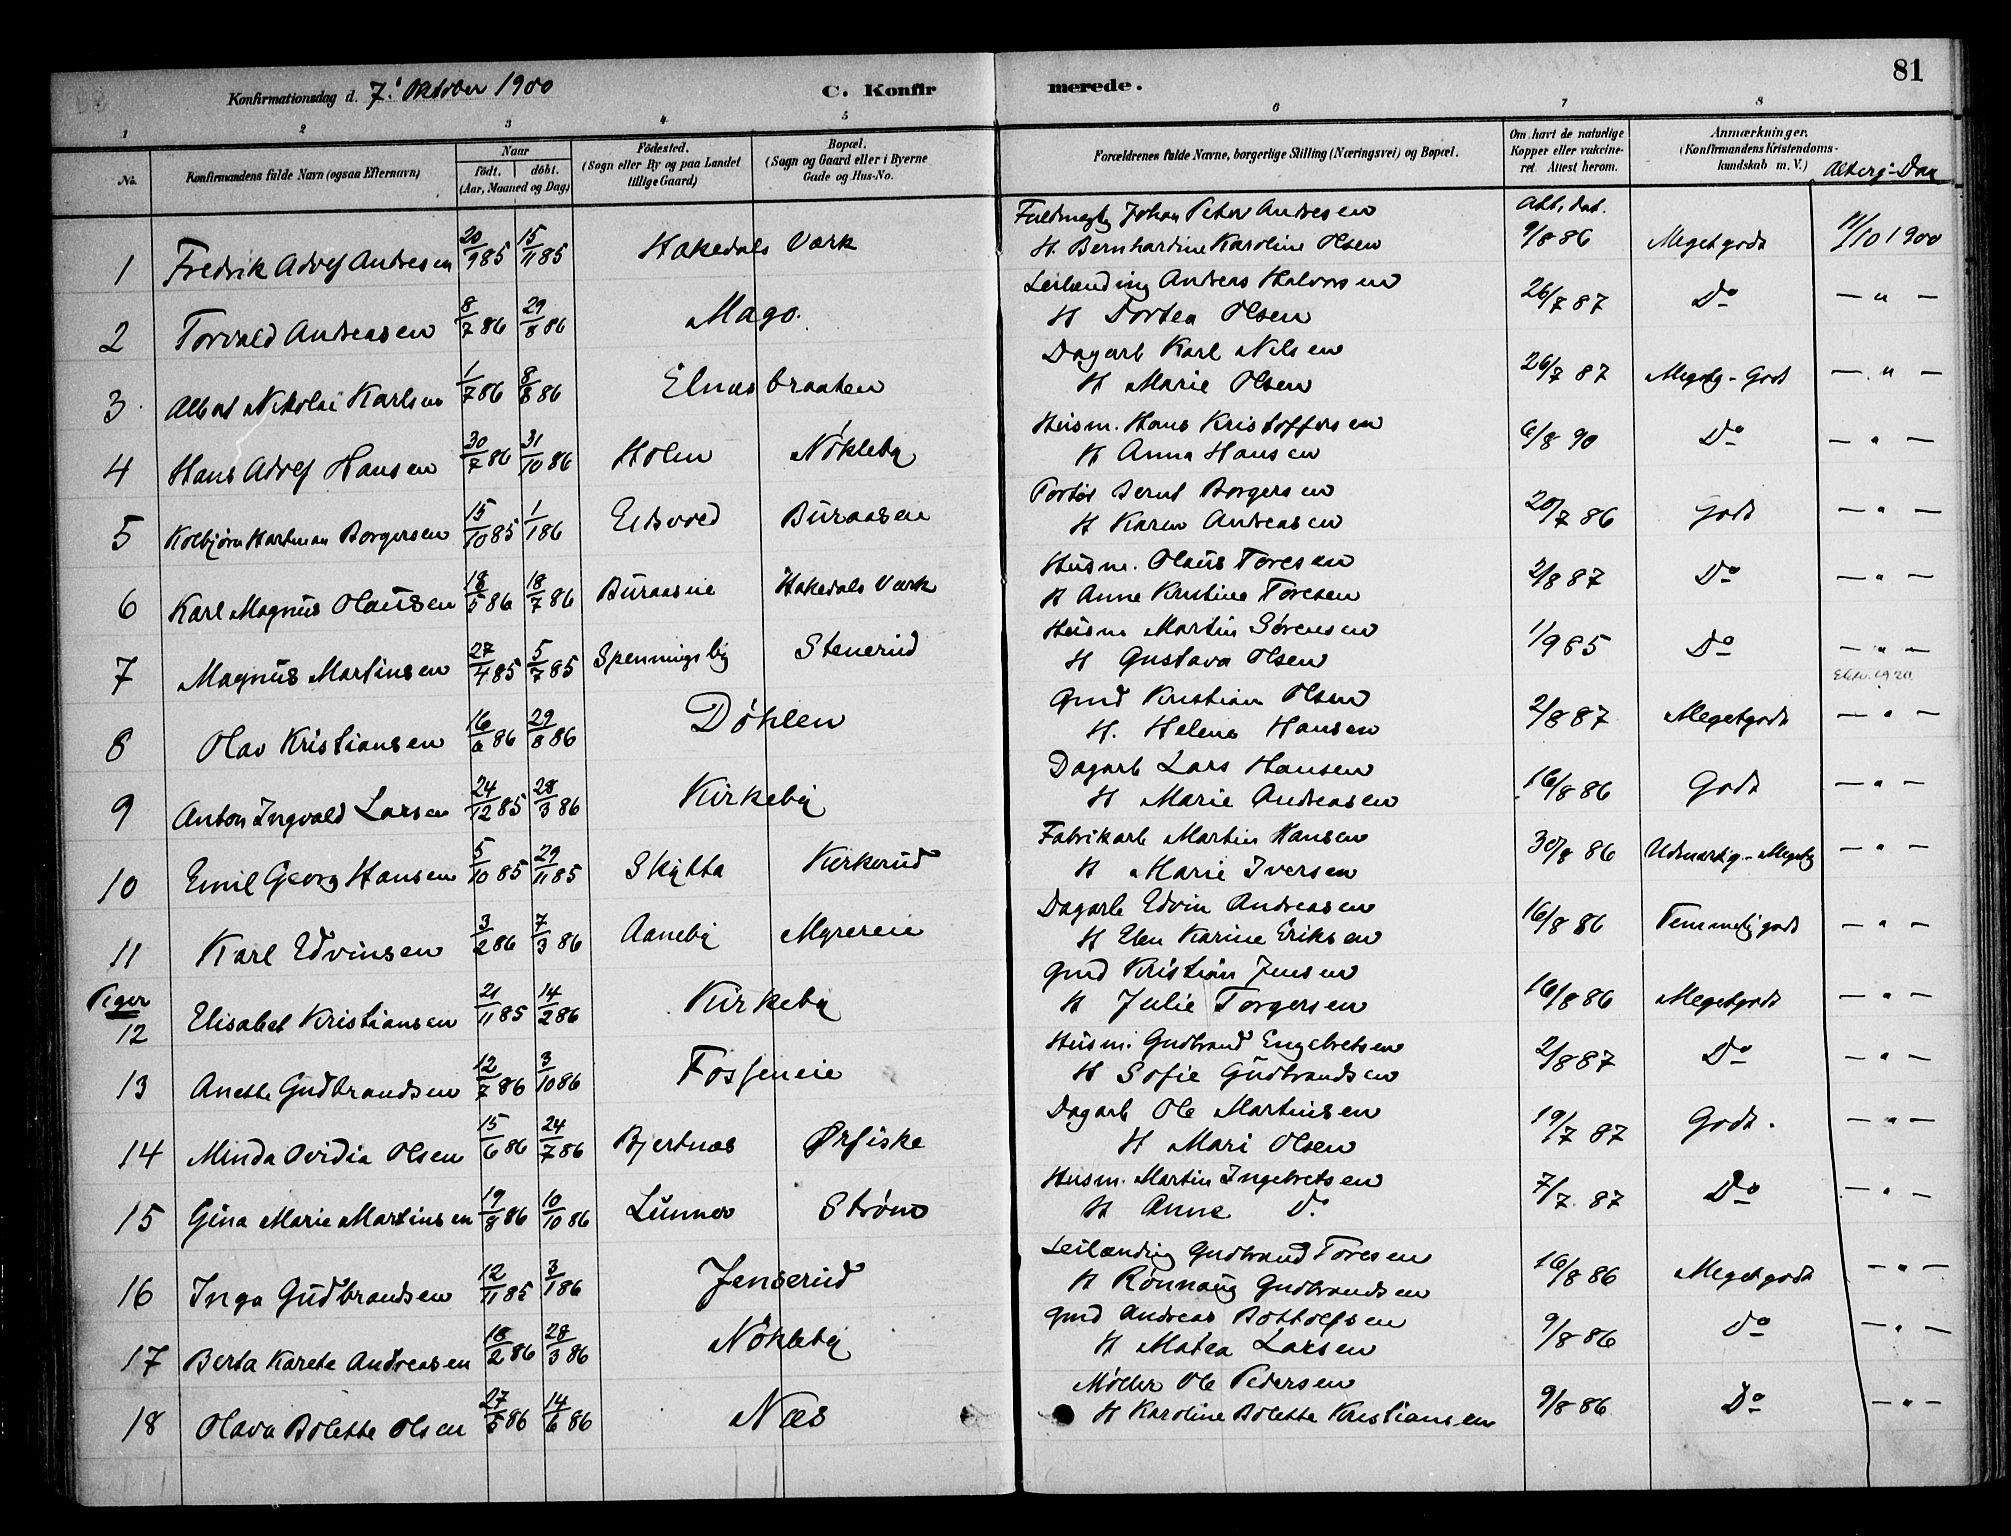 81
Konfirmationsdag d. 7' Oktober 1900 C. Konfirmerede.
1 2 3 4 5 6 7 8
No. Konfirmandens fulde Navn (ogsaa Efternavn) Naar født. døbt. (Aar, Maaned og Dag) Födested. (Sogn eller By og paa Landet tillige Gaard) Bopæl. (Sogn og Gaard eller i Byerne Gade og Hus-No. Forældrenes fulde Navne, borgerlige Stilling (Næringsvei) og Bopæl. Om havt de naturlige Kopper eller vakcineret. Attest herom. Anmærkninger. (Konfirmandens Kristendomskundskab m. V.) Alterg-Dag
Fuldmægtg Johan Peter Andresen Att. dat.
1 Fredrik Adolf Andresen 20/9 85 15/11 85 Hakedals Værk H. Bernhardine Karoline Olsen 9/8 86 Megetgodt 11/10 1900
Leilænding Andreas Halvorsen
2 Torvald Andreasen 8/7 86 29/8 86 Mago. H Dortea Olsen 26/7 87 Do — " —
Dagarb Karl Nilsen
3 Albert Nikolai Karlsen 1/7 86 8/8 86 Elnæsbraaten H Marie Olsen 26/7 87 Megetg-Godt — " —
Husm. Hans Kristoffersen
4 Hans Adolf Hansen 30/7 86 31/10 86 Holm Nökleby H Anna Hansen 6/8 90 Do — " —
Bernt Borgersen
5 Kolbjörn Hartman Borgersen 15/10 85 1/1 86 Eidsvold Buraasen H Karen Andreasen 20/7 86 Godt — " —
Husm. Olaus Toresen
6 Karl Magnus Olausen 18/5 86 18/7 86 Buraaseie Hakedals Værk H Anne Kristine Toresen 2/8 87 Do — " —
Husm Martin Sørensen
7 Magnus Martinsen 27/4 85 5/7 85 Spenningsby Stenerud H Gustava Olsen 1/9 85 Do — " —
Gmd Kristian Olsen
8 Olav Kristiansen 16/6 86 29/8 86 Döhlen H. Helene Hansen 2/8 87 Megetgodt — " —
Dagarb Lars Hansen
9 Anton Ingvald Larsen 24/12 85 28/3 86 Kirkeby H Marie Andreasen 16/8 86 Godt — " —
Fabrikarb Martin Hansen
10 Emil Georg Hansen 5/10 85 29/11 85 Skytta Kirkerud H Marie Iversen 30/8 86 Udmærkg-Megetg — " —
Dagarb Edvin Andreasen
11 Karl Edvinsen 3/2 86 7/3 86 Aaneby Myrereie H Elen Karine Eriksen 16/8 86 Temmeliggodt — " —
Piger Gmd Kristian Jensen
12 Elisabet Kristiansen 21/11 85 14/2 86 Kirkeby H Julie Torgersen 16/8 86 Megetgodt — " —
Husm. Gudbrand Engebretsen
13 Anette Gudbrandsen 12/7 86 3/10 86 Fosseneie H Sofie Gudbrandsen 2/8 87 Do — " —
Dagarb Ole Martinsen
14 Minda Ovidia Olsen 15/6 86 24/7 86 Bjertnæs Ørfiske H Mari Olsen 19/7 87 Godt. — " —
Husm. Martin Ingebretsen
15 Gina Marie Martinsen 19/8 86 10/10 86 Lunner Strøm H Anne Do 7/7 87 Do — " —
Leilænding Gudbrand Toresen
16 Inga Gudbrandsen 12/11 85 3/1 86 Jenserud H Rønnaug Gudbrandsen 16/8 86 Megetgodt — " —
Gmd Andreas Bottolfsen
17 Berta Karete Andreasen 18/2 86 28/3 86 Nökleby H Matea Larsen 9/8 86 Do — " —
Møller Ole Pedersen
18 Olava Bolette Olsen 27/5 86 14/6 86 Næs H Karoline Bolette Kristiansen 9/8 86 Do — " —